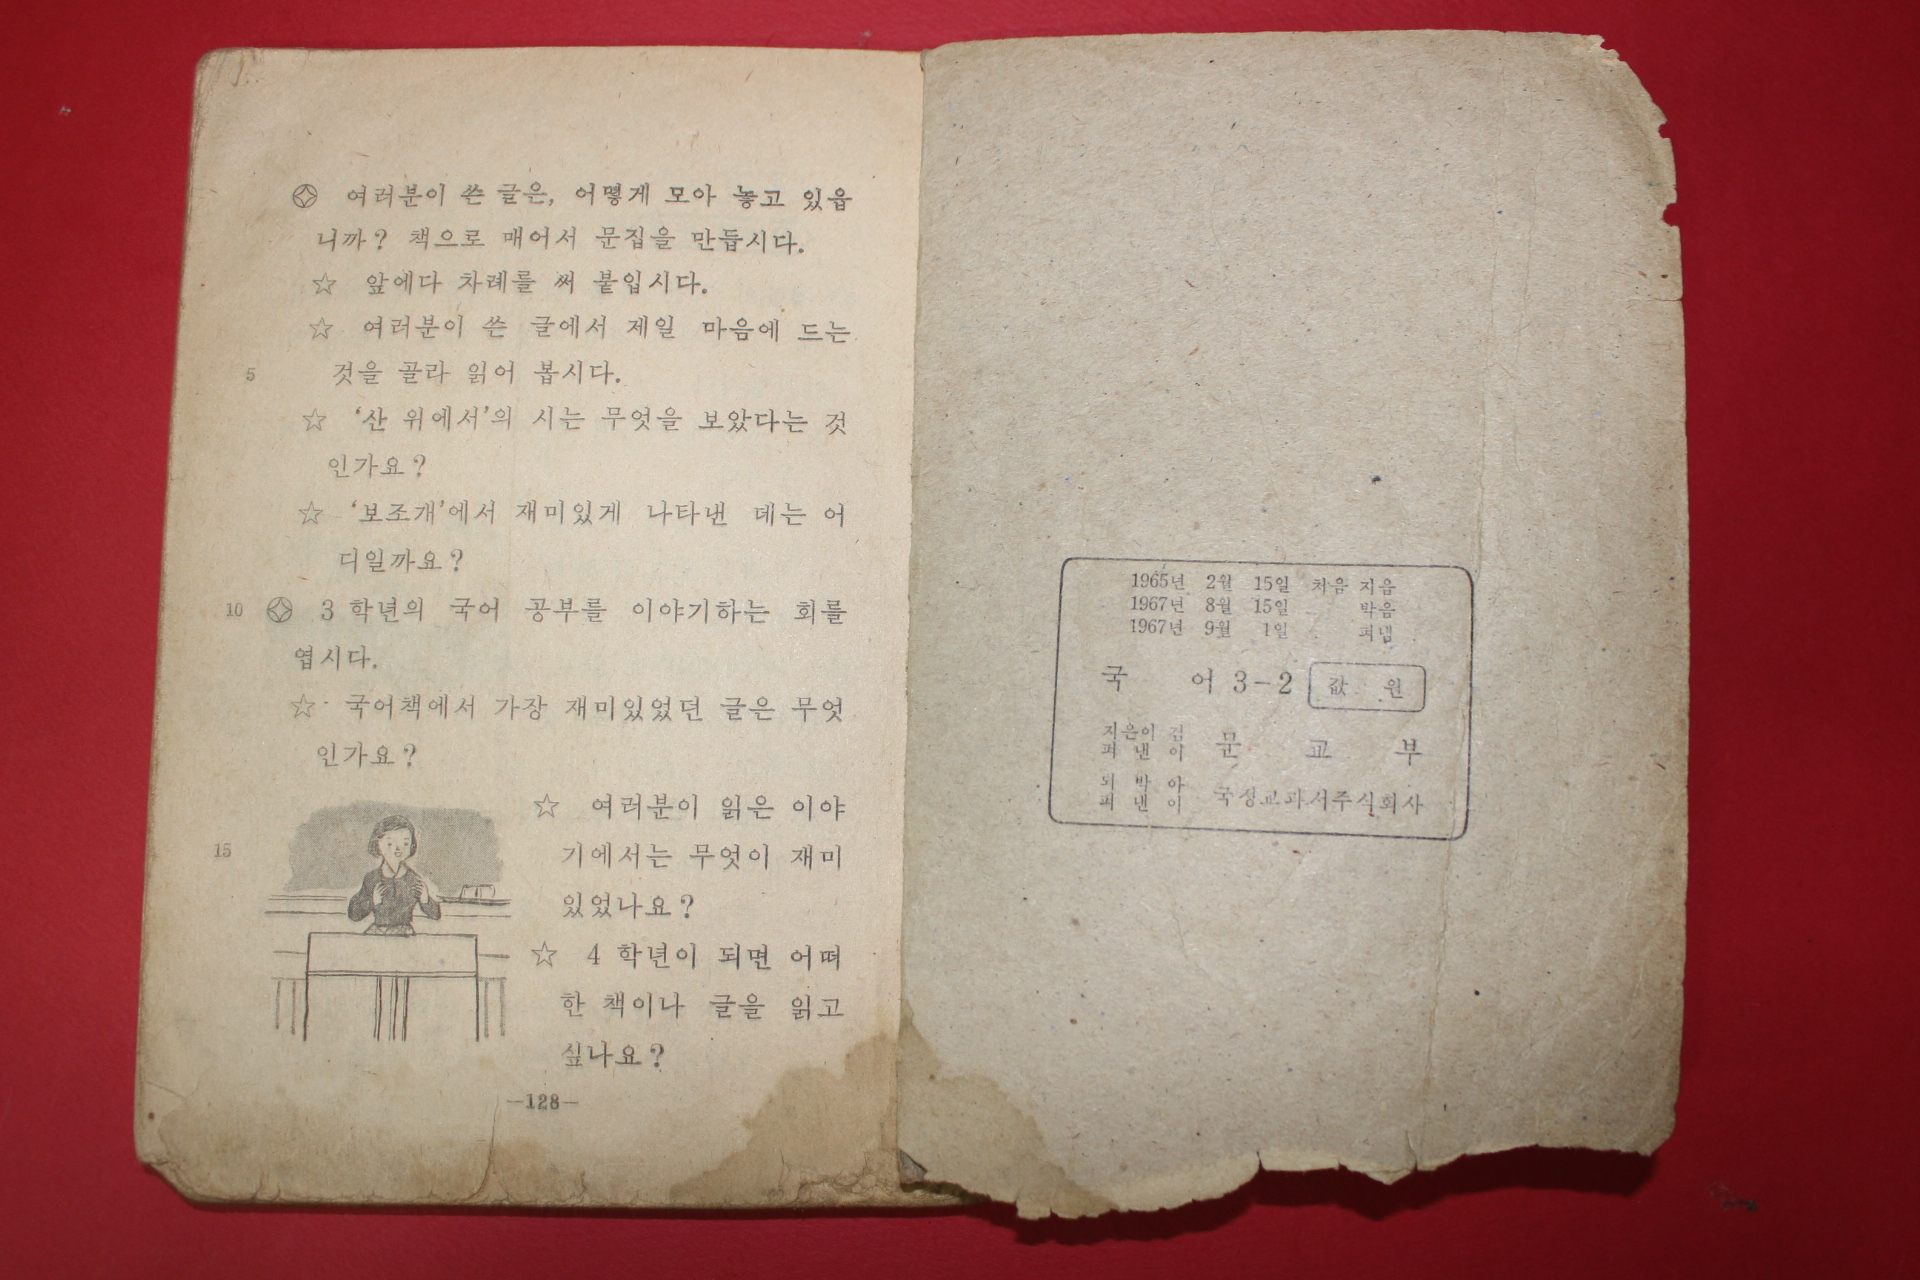 여러분이 쓴 글은, 어떻게 모아 놓고 있읍
니까? 책으로 매어서 문집을 만듭시다.
☆ 앞에다 차례를 써 붙입시다.
☆ 여러분이 쓴 글에서 제일 마음에 드는
5 것을 골라 읽어 봅시다.
☆ ‘산 위에서’의 시는 무엇을 보았다는 것
인가요?
☆ ‘보조개’에서 재미있게 나타낸 데는 어
디일까요?
10 3 학년의 국어 공부를 이야기하는 회를
엽시다.
☆ 국어책에서 가장 재미있었던 글은 무엇
인가요?
☆ 여러분이 읽은 이야
15 기에서는 무엇이 재미
있었나요?
☆ 4 학년이 되면 어떠
한 책이나 글을 읽고
싶나요?
—128—
1965년 2월 15일 처음 지음
1967년 8월 15일 박음
1967년 9월 1일 펴냄
국 어 3-2 값 원
지은이 겸
펴 낸 이 문 교 부
되 박 아
펴 낸 이 국정교과서주식회사